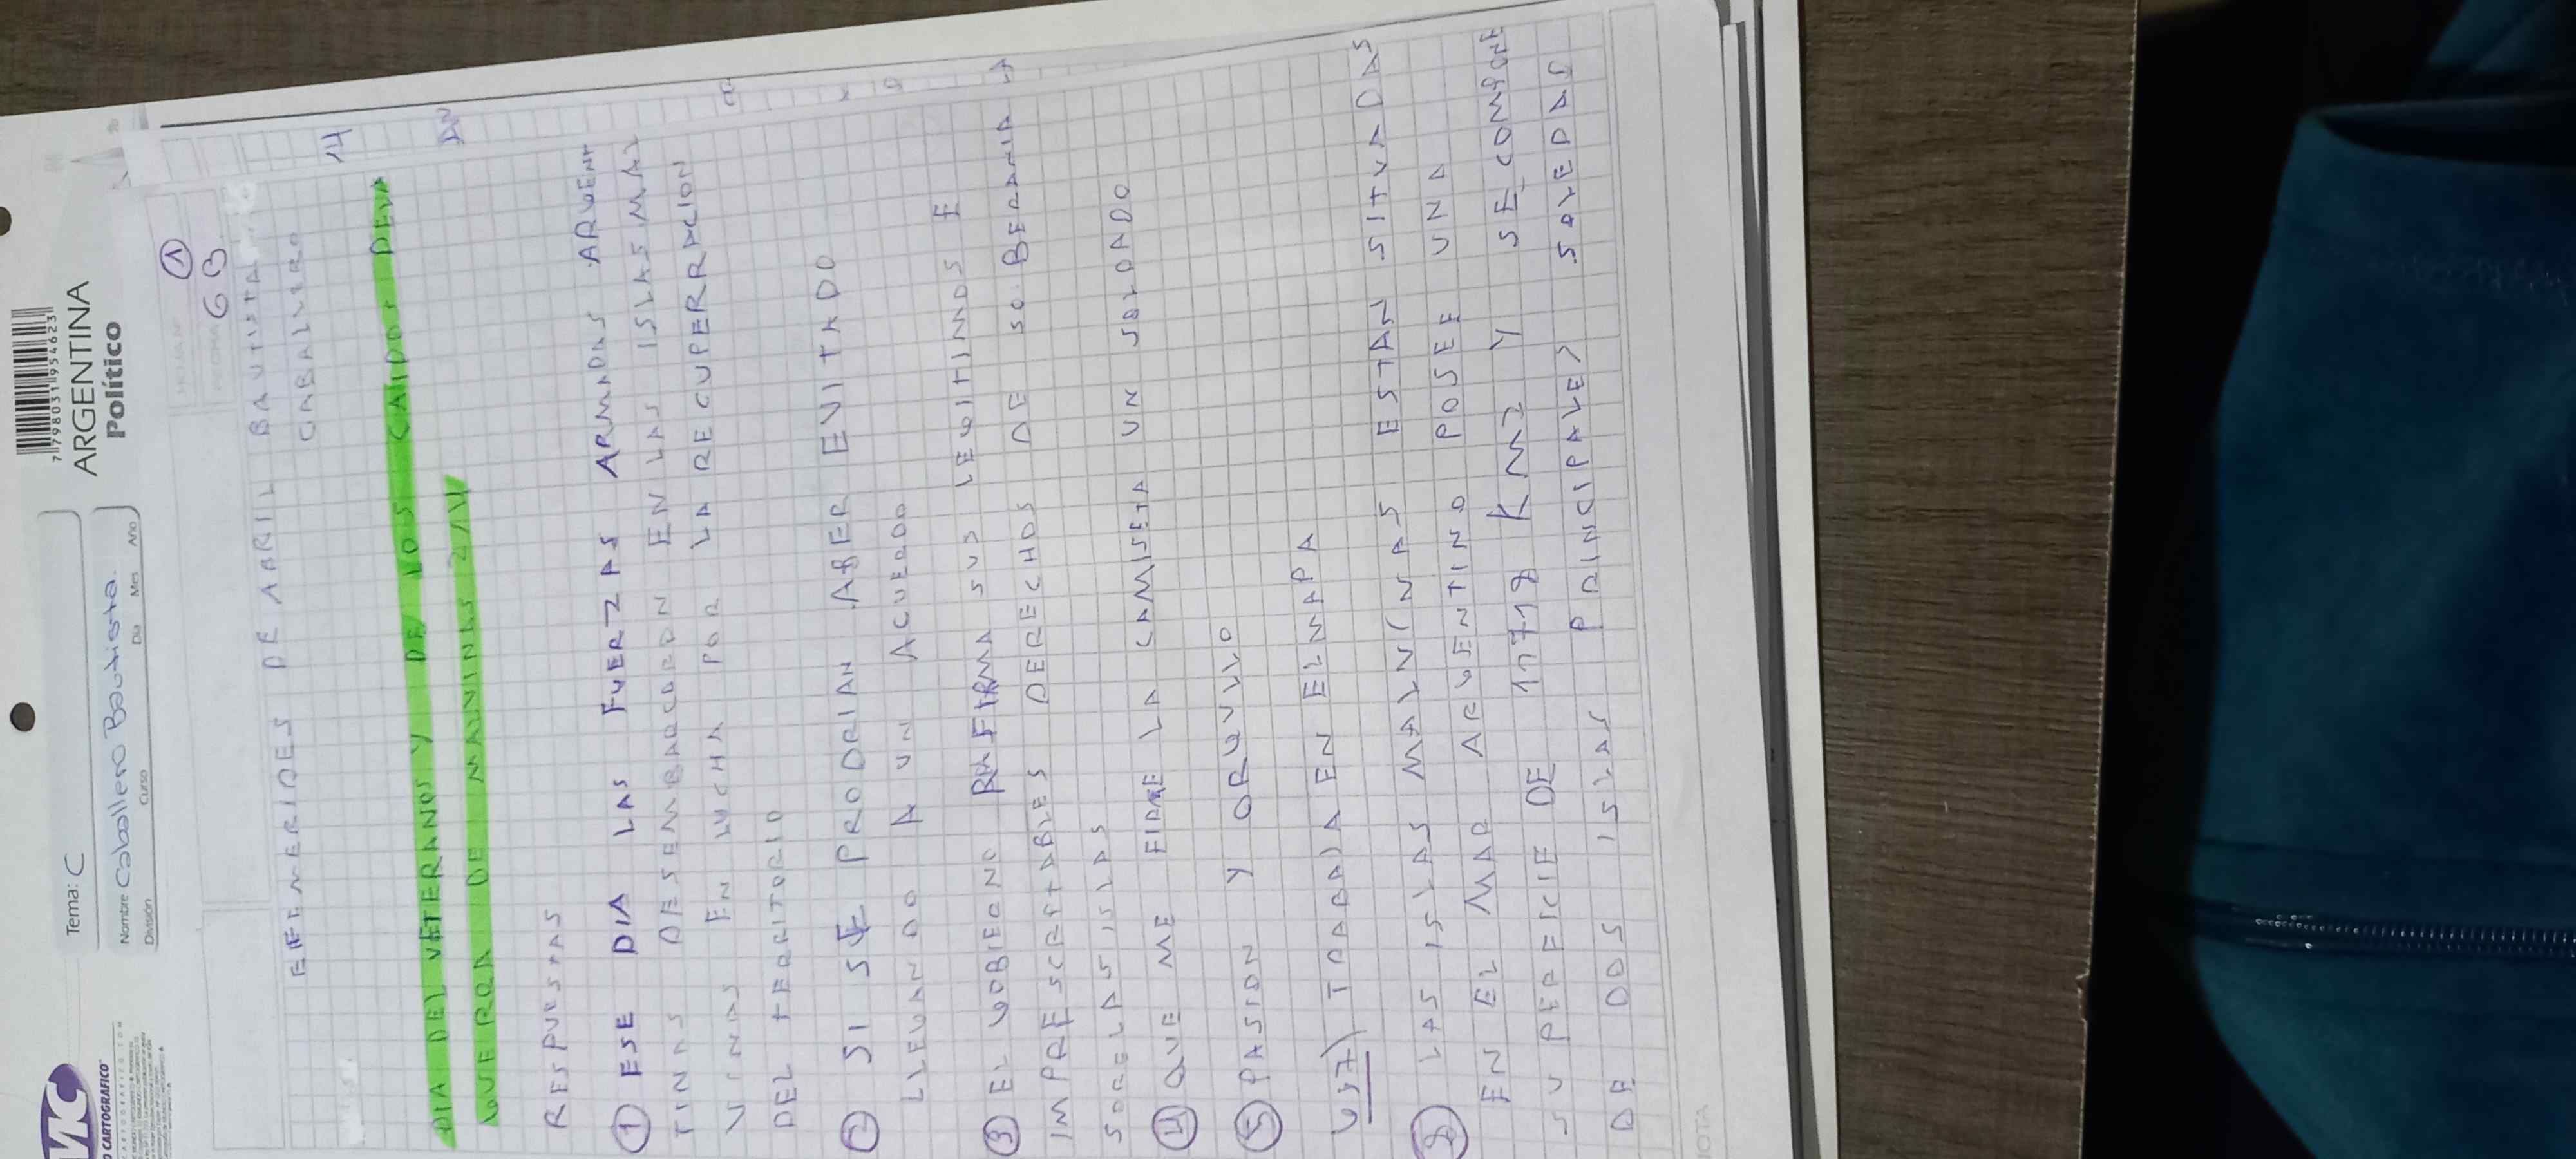 7 798031 954623
ARGENTINA
Político
Tema: C
Nombre Caballero Bautista.
División Curso Día Mes Año
O CARTOGRAFICO
HOJA Nº 1
6B
EFEMERIDES DE ABRIL BAUTISTA
CABALLERO
DIA DEL VETERANOS Y DE LOS CAIDOS DE LA
GUERRA DE MALVINAS 2/4
RESPUESTAS
1 ESE DIA LAS FUERZAS ARMADAS ARGENT
TINAS DESEMBARCARON EN LAS ISLAS MAL
VINAS EN LUCHA POR LA RECUPERRACION
DEL TERRITORIO
2 SI SE PRODRIAN ABER EVITADO
LLEVANDO A UN ACUERDO
3 EL GOBIERNO RAFIRMA SUS LEGITIMOS E
IMPRESCRPTABLES DERECHOS DE SOBERANIA
SORELAS ISLAS
4 QUE ME FIRME LA CAMISETA UN SOLDADO
5 PASION Y ORGULLO
TRABAJA EN EL MAPA
LAS ISLAS MALVINAS ESTAN SITUADAS
EN EL MAR ARGENTINO POSEE UNA
SUPERFICIE DE 11718 KM2 Y SE COMPONE
DE DOS ISLAS PRINCIPALES SOLEDAD
NOTA